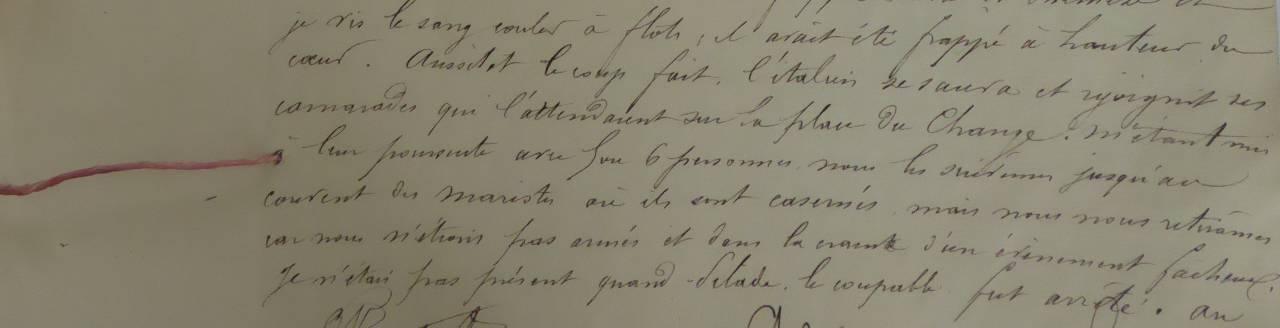 je vis le sang couler à flots, il avait été frappé à hauteur du
cœur. Aussitot le coup fait, l'italien se sauva et rejoignit ses
camarades qui l'attendaient sur la place du Change. M'étant mis
à leur poursuite avec 5 ou 6 personnes nous les suivîmes jusqu'au
couvent des maristes où ils sont casernés mais nous nous retirâmes
car nous n'étions pas armés et dans la crainte d'un évènement fâcheux.
Je n'étais pas présent quand le coupable fut arrêté. au